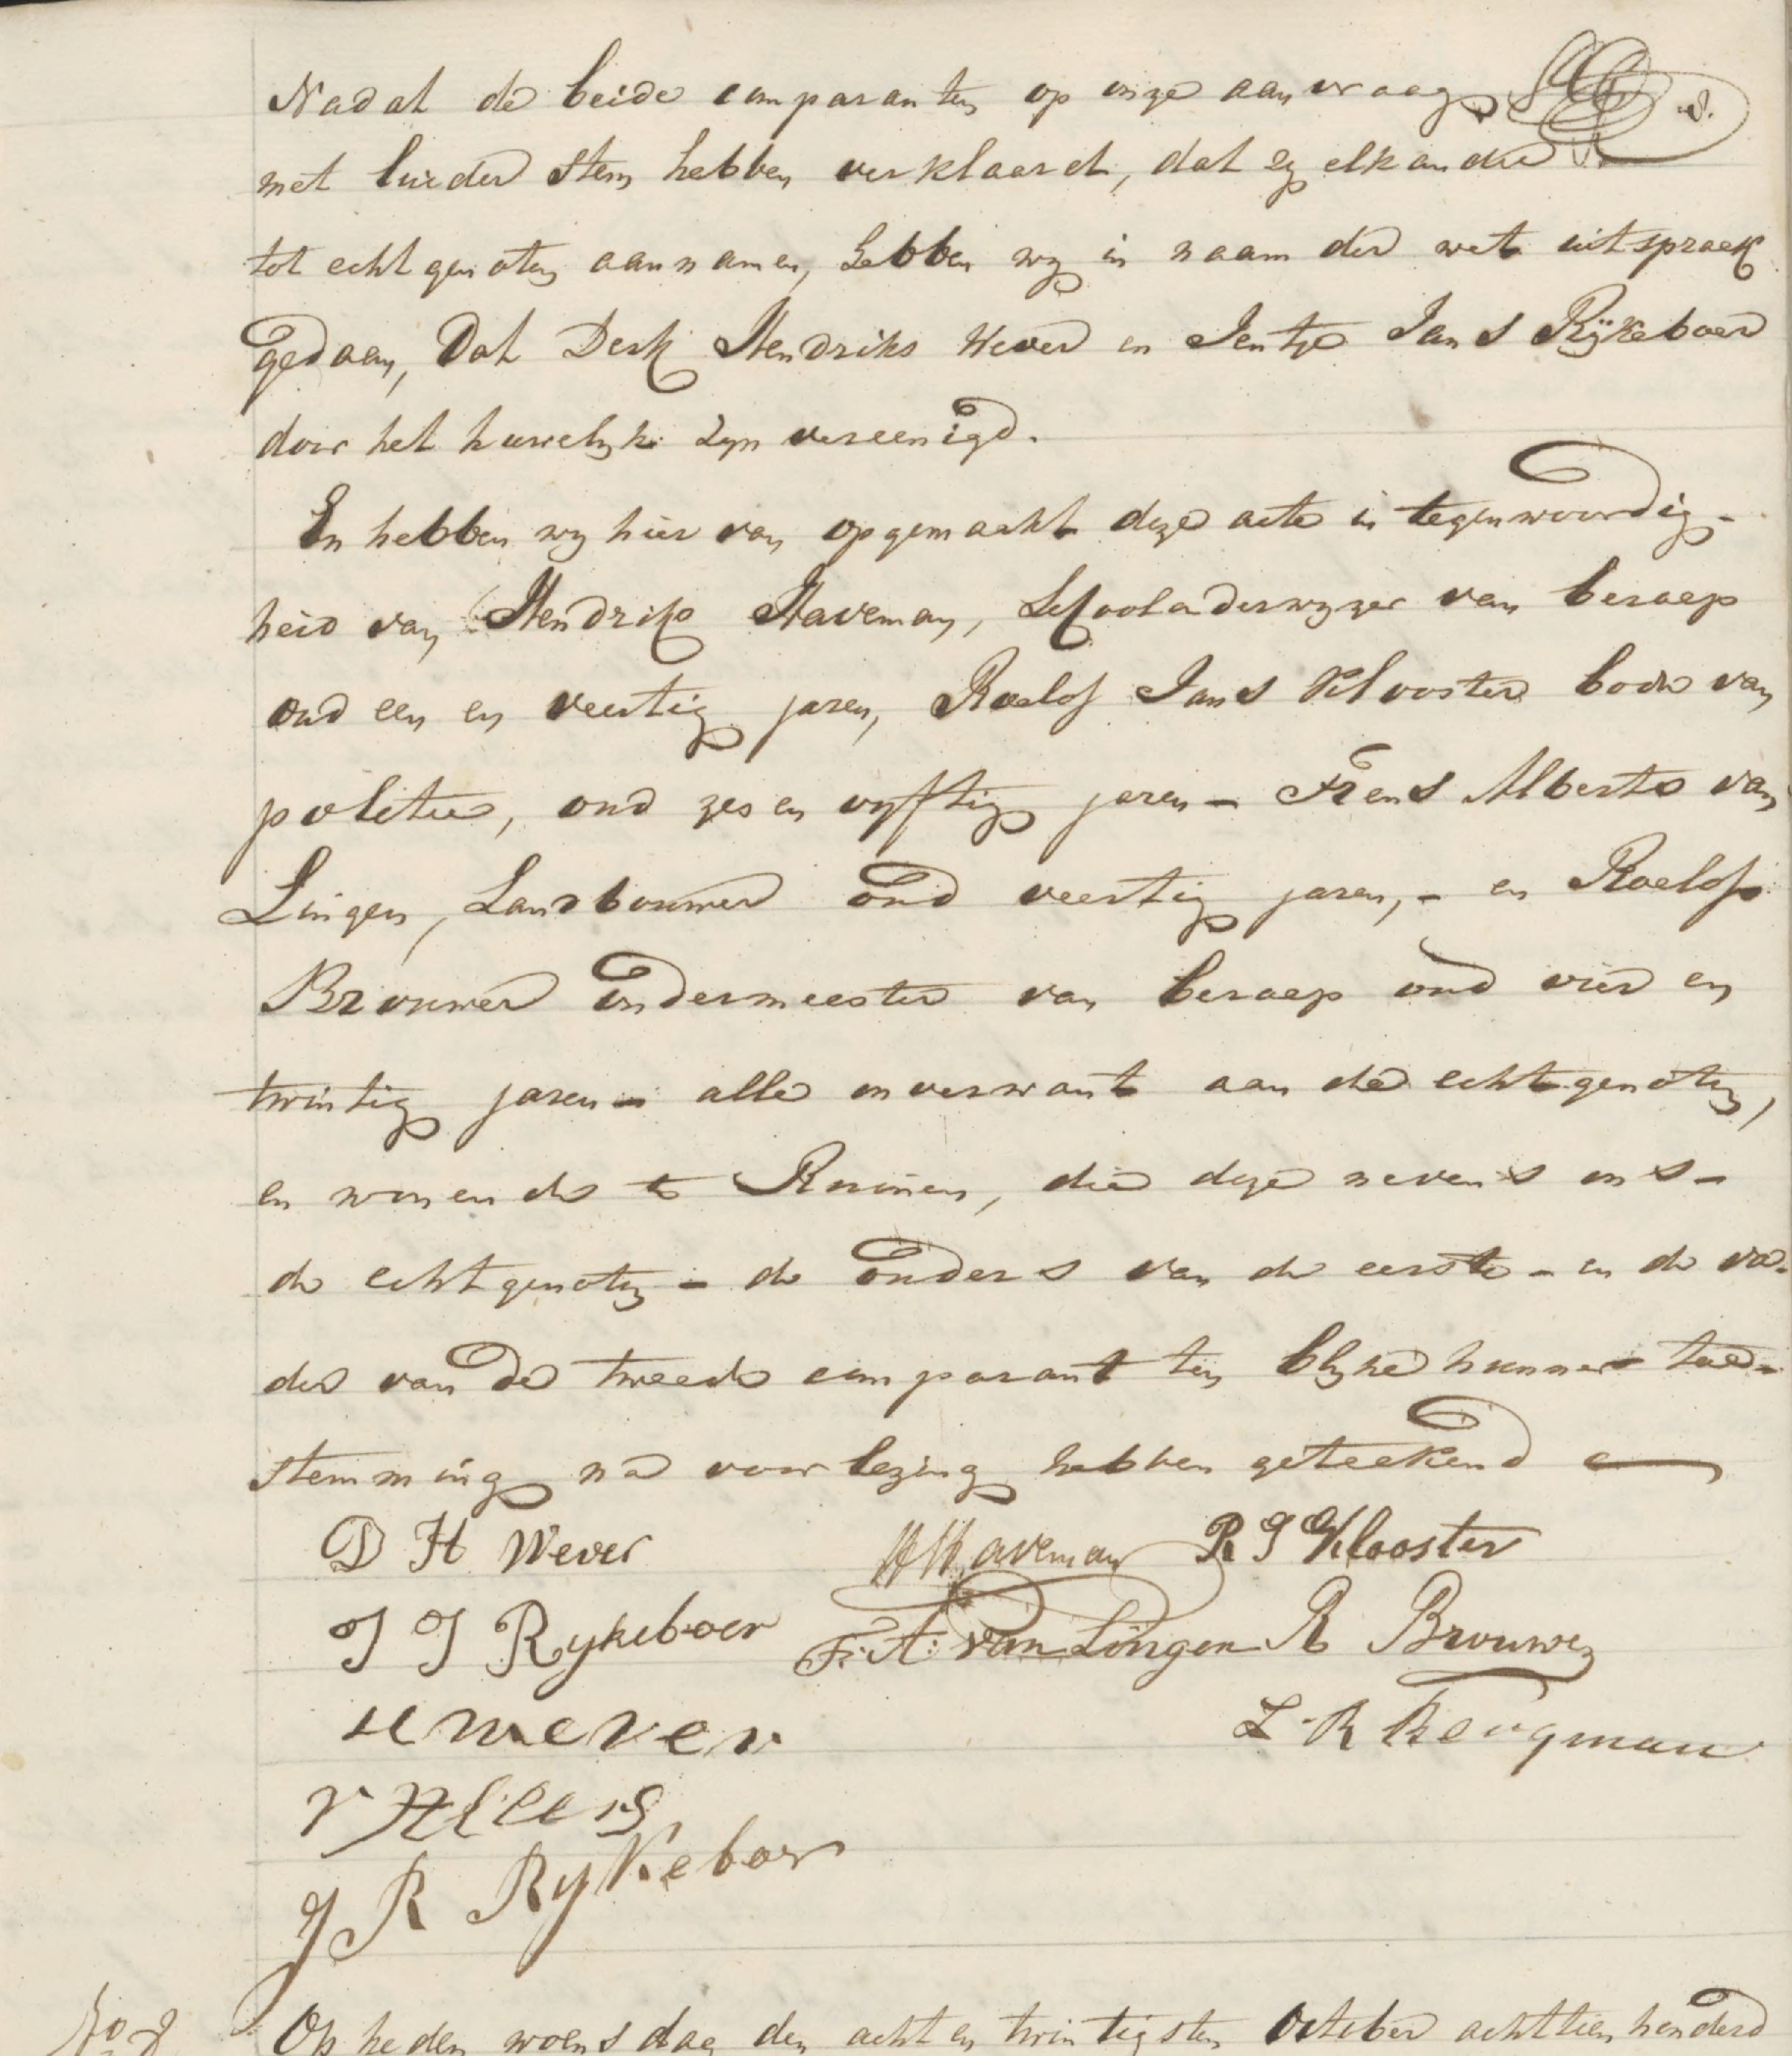 Nadat de beide comparanten op onze aanvraag
met luider stem hebben verklaard, dat zy elkander
tot echtgenoten aannamen, hebben wy in naam der wet uitspraak
gedaan, Dat Derk Hendriks Wever en Jentje Jans Rijkeboer
door het huwelyk zyn vereenigd.
En hebben wy hier van opgemaakt deze acte in tegenwoordig-
heid van Hendrik Haveman, Schoolonderwyzer van beroep
oud een en veertig jaren, Roelof Jans Klooster bode van
politie, oud zes en vyftig jaren - Frens Alberts van
Lingen, Landbouwer oud veertig jaren, - en Roelof
Brouwer ondermeester van beroep oud vier en
twintig jaren - alle onverwant aan de echtgenoten,
en wonende te Ruinen, die deze nevens ons -
de echtgenoten - de ouders van de eerste - en de va-
der van de tweede comparant ten blyke hunner toe-
stemming na voorlezing hebben geteekend
D H Wever H Haveman R J Klooster
J J Rykeboer F: A: van Lingen R Brouwer
H wever L R Bergman
J R Rykeboer
No 8 Op heden woensdag den acht en twintigsten October achttien honderd